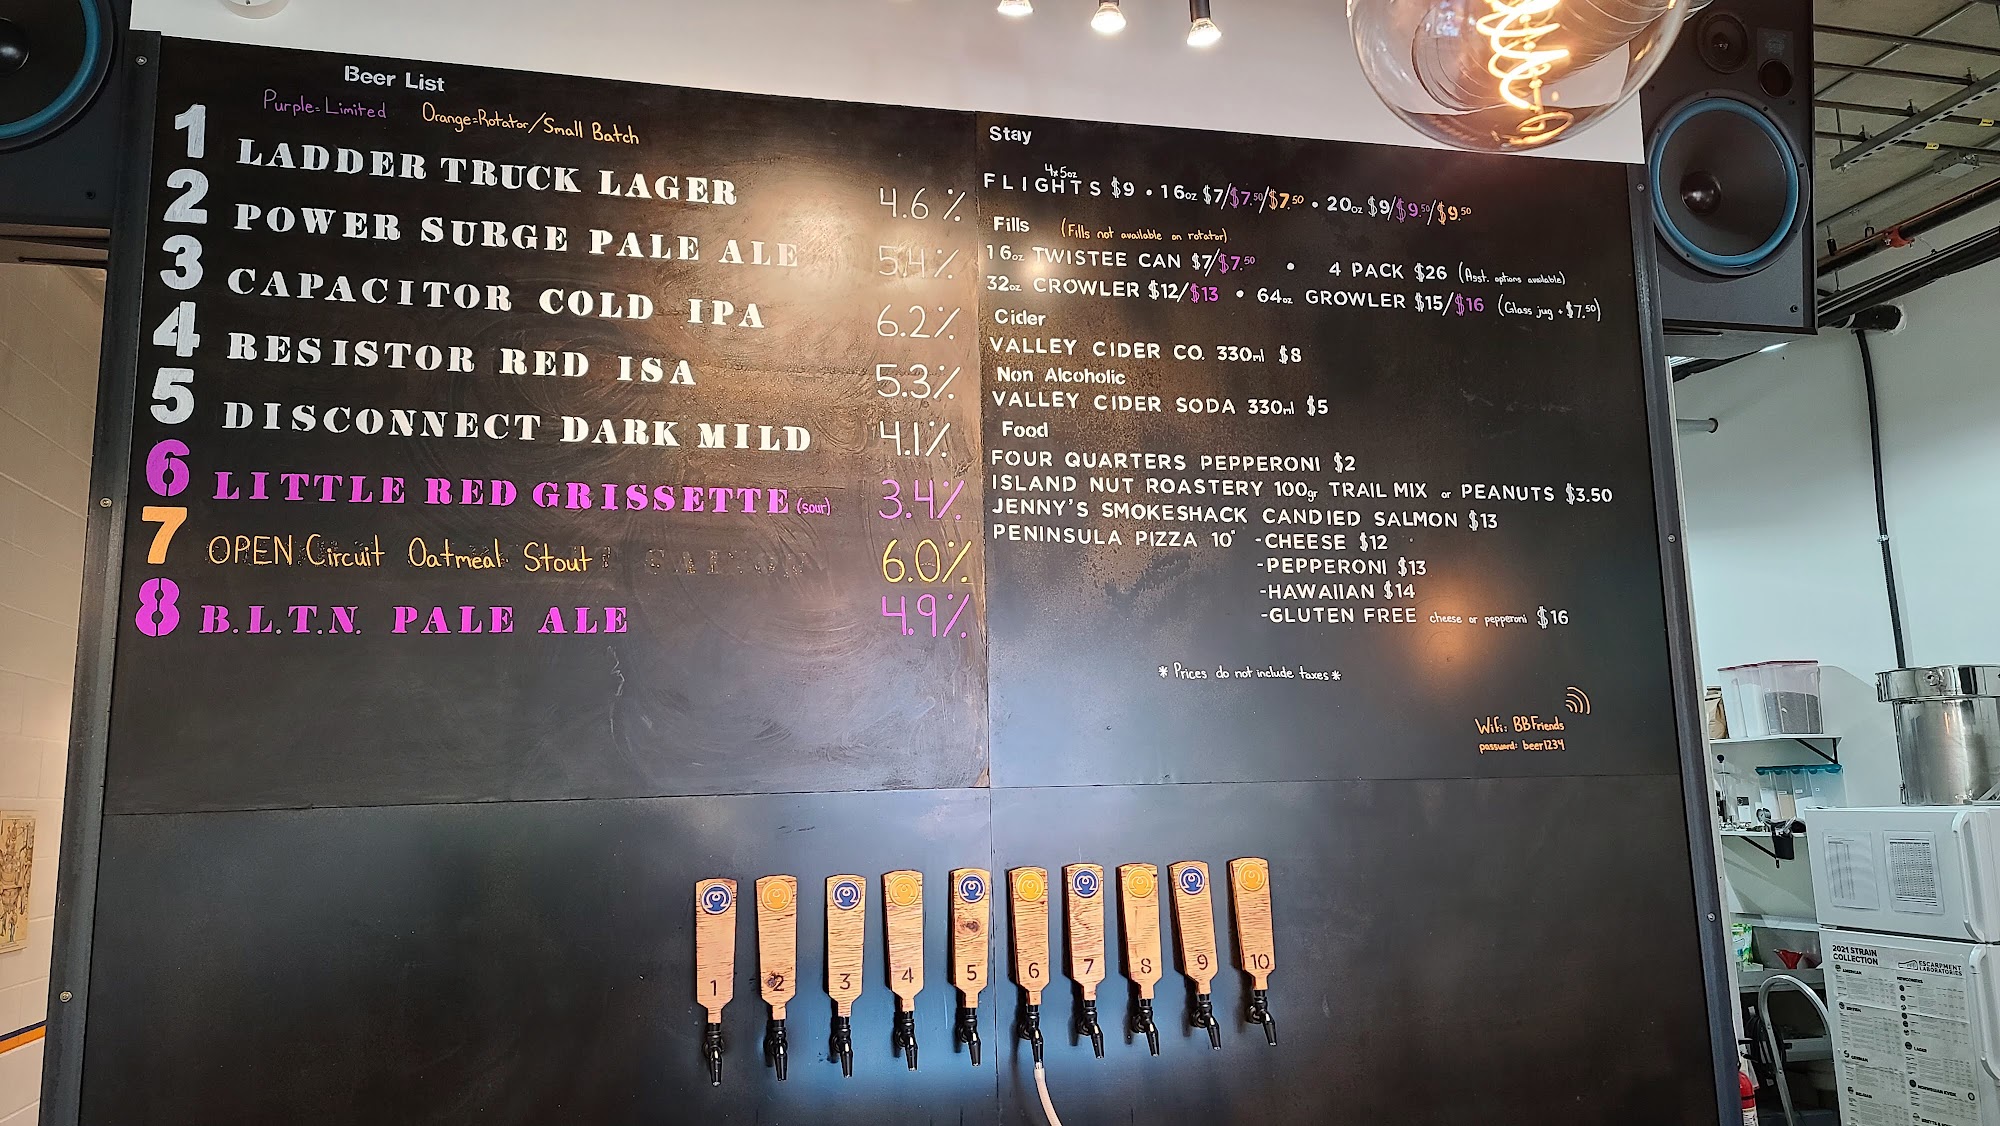 Beer List
Purple=Limited Orange=Rotator/Small Batch
1 LADDER TRUCK LAGER 4.6%
2 POWER SURGE PALE ALE 5.4%
3 CAPACITOR COLD IPA 6.2%
4 RESISTOR RED ISA 5.3%
5 DISCONNECT DARK MILD 4.1%
6 LITTLE RED GRISSETTE (sour) 3.4%
7 OPEN Circuit Oatmeal Stout 6.0%
8 B.L.T.N. PALE ALE 4.9%
Stay
4x5oz
FLIGHTS $9 • 16oz $7/$7.50/$7.50 • 20oz $9/$9.50/$9.50
Fills (Fills not available on rotator)
16oz TWISTEE CAN $7/$7.50 • 4 PACK $26 (Asst. options available)
32oz CROWLER $12/$13 • 64oz GROWLER $15/$16 (Glass jug + $7.50)
Cider
VALLEY CIDER CO. 330ml $8
Non Alcoholic
VALLEY CIDER SODA 330ml $5
Food
FOUR QUARTERS PEPPERONI $2
ISLAND NUT ROASTERY 100gr TRAIL MIX or PEANUTS $3.50
JENNY'S SMOKESHACK CANDIED SALMON $13
PENINSULA PIZZA 10" -CHEESE $12
-PEPPERONI $13
-HAWAIIAN $14
-GLUTEN FREE cheese or pepperoni $16
* Prices do not include taxes *
Wifi: BBFriends
password: beer1234
1 2 3 4 5 6 7 8 9 10
2021 STRAIN
COLLECTION
ESCARPMENT
LABORATORIES